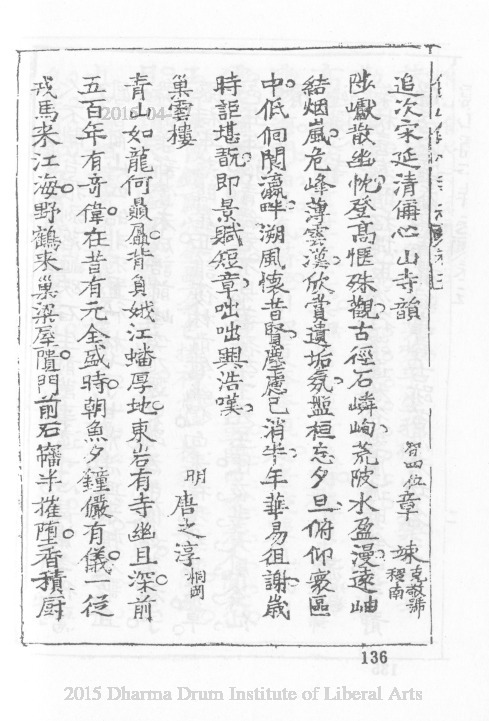 追次宋延清偁心山寺韻
智四位 章 竦 克敬號稷南
陟巘散幽忱登高愜殊觀古徑石嶙峋荒陂水盈漫遠岫
結烟嵐危峰薄雲漢欣賞遺垢氛盤桓忘夕旦俯仰寰區
中低佪閱瀛畔溯風懷昔賢塵慮已消半年華易徂謝歲
時詎堪翫即景賦短章咄咄興浩嘆
明 唐之淳 桐岡
巢雲樓
青山如龍何贔屭背負娥江蟠厚地東岩有寺幽且深前
五百年有奇偉在昔有元全盛時朝魚夕鐘儼有儀一從
戎馬來江海野鶴來巢梁屋隤門前石籓半摧堕香積厨
136
2015-04-
2015 Dharma Drum Institute of Liberal Arts